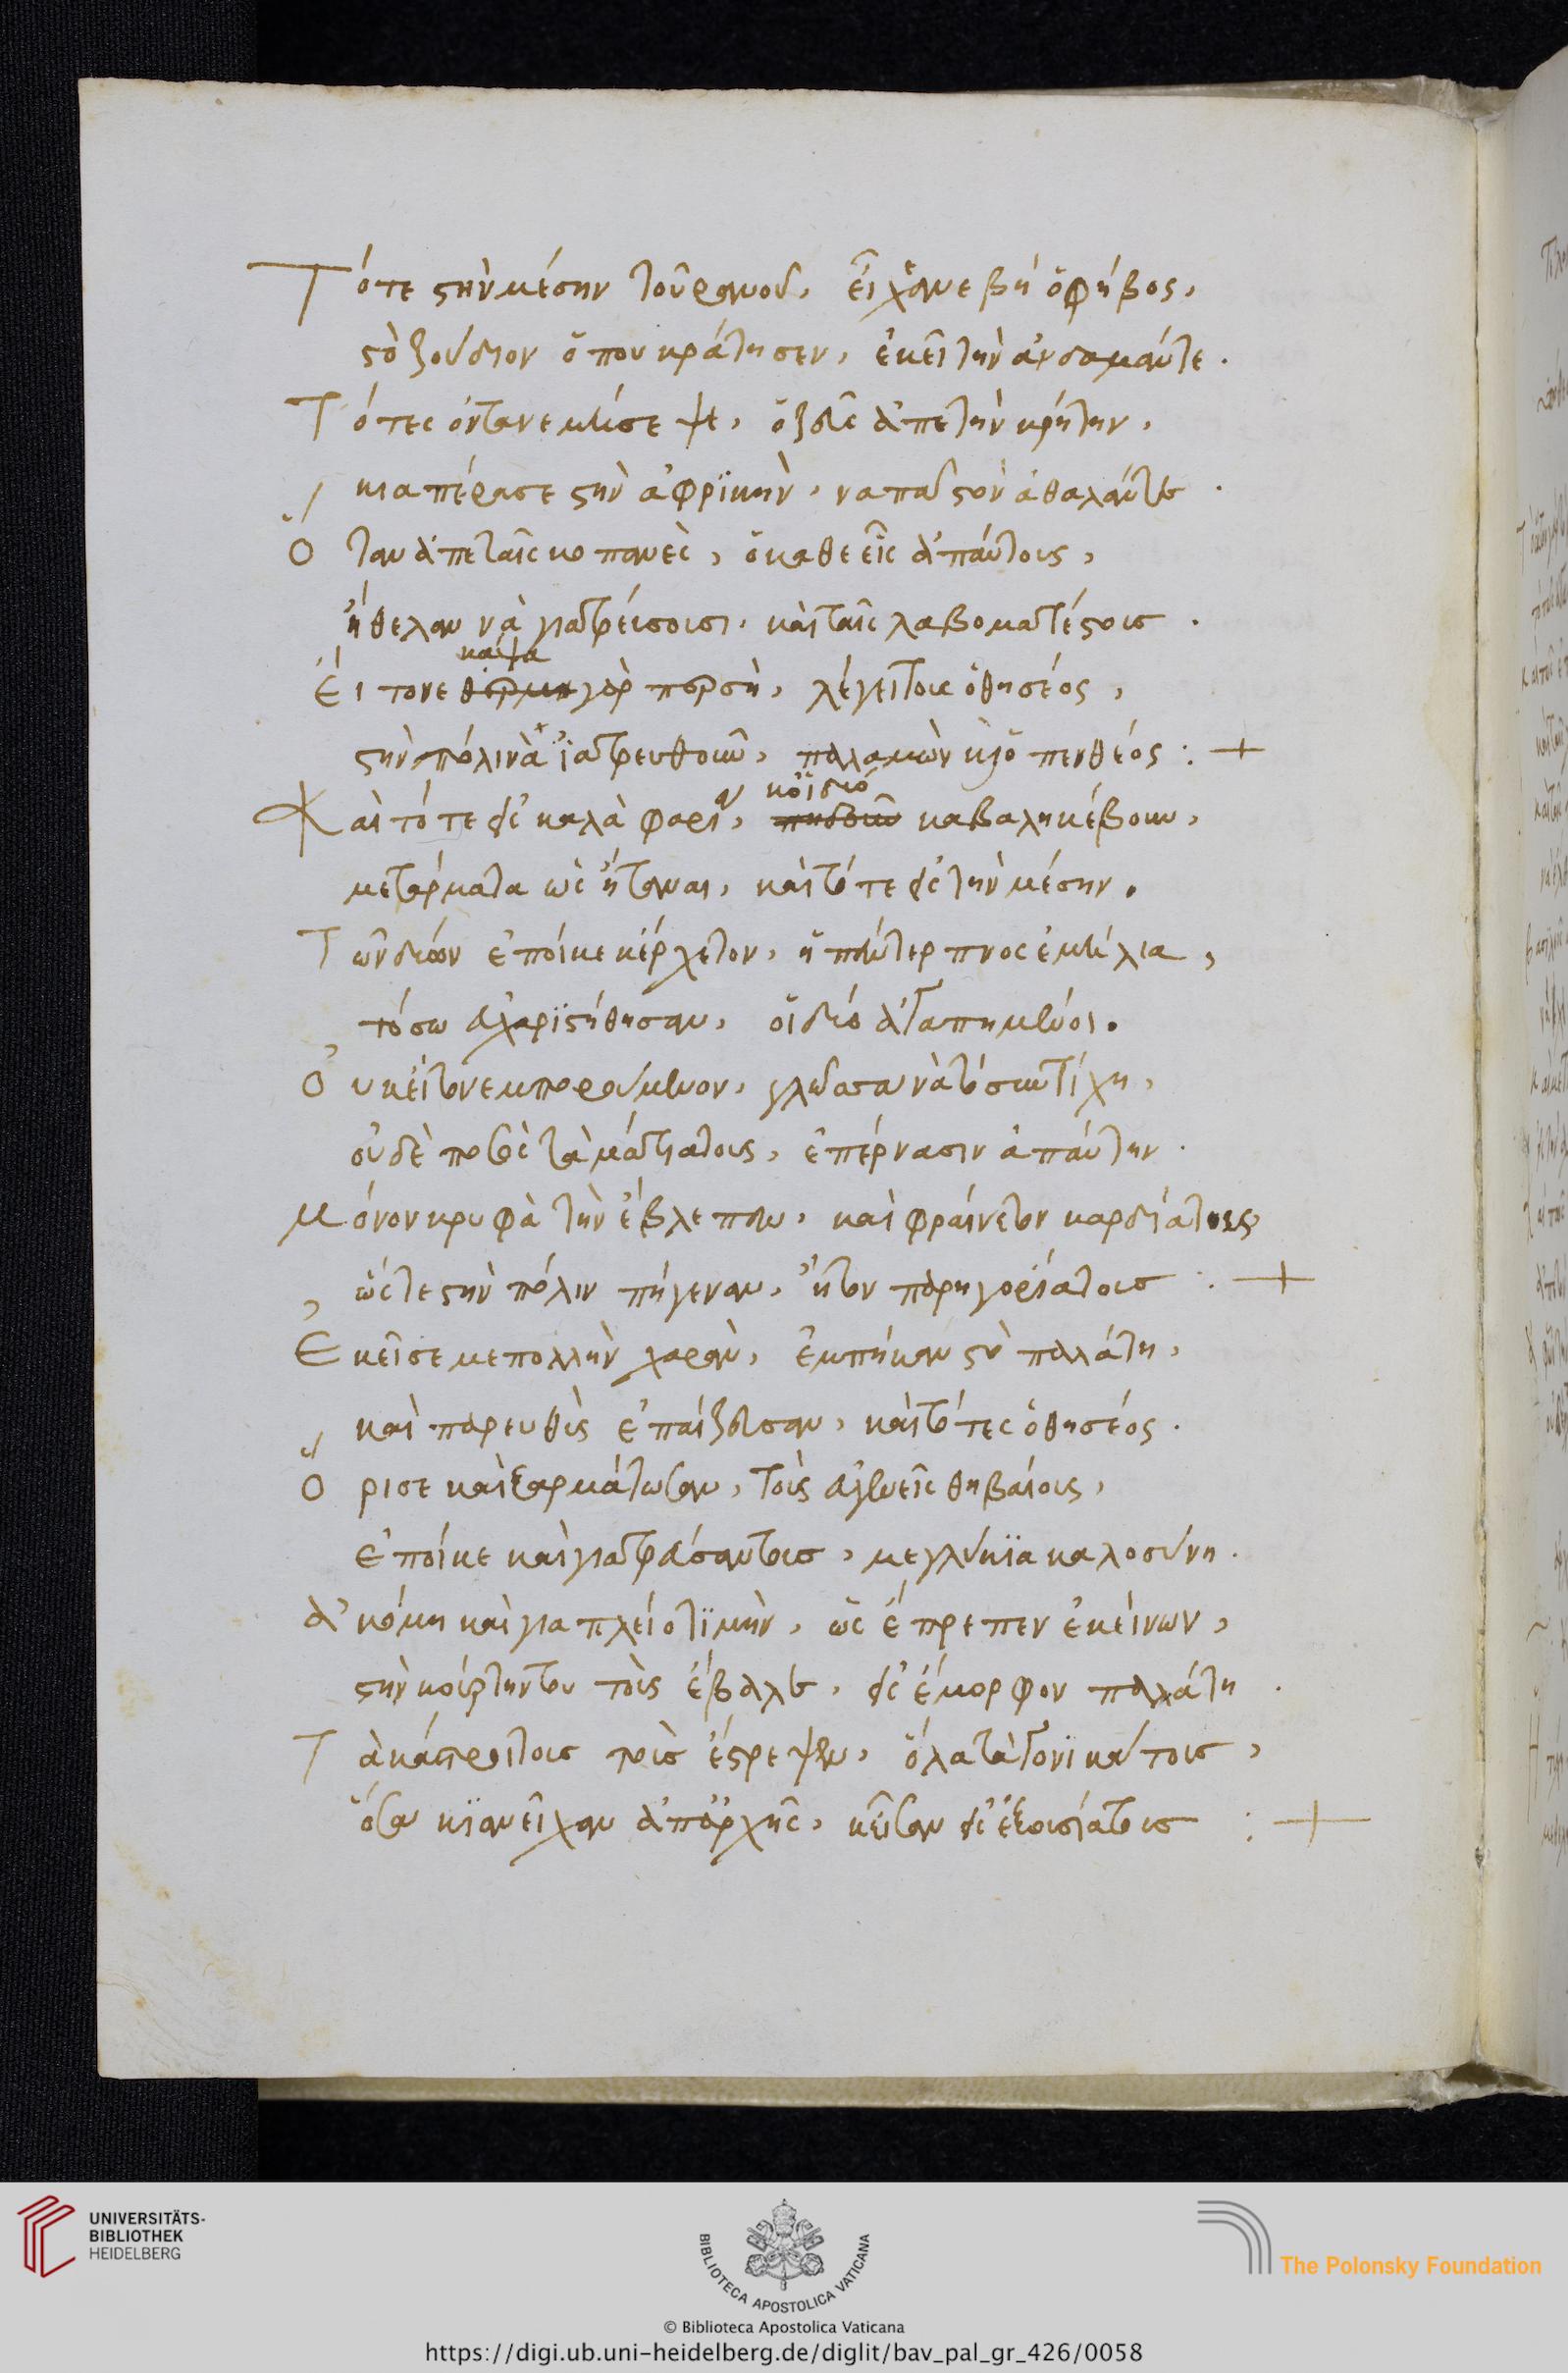 Τότε στὴν μέσην τοῦρανοῦ, εἶχανεβῆ ὁ φήβος,
στὸ ζούδιον ὅπου κράτησεν, ἐκεῖ τὴν
Τότες ὁνταν ἐκίνησε ψε, ὁ ζεῦς ἀπε τὴν κρήτην,
κι α πέρασε στὴν ἀφρϊκὴν, να πα στὸν ἀθαλάντε.
Ὅταν ἀπε ταῖς κοπανὲς, ὁ καθε εἷς ἀπαύτους,
ἤθελαν νὰ γιατρέισουσι, καὶ ταῖς λαβοματιές τους.
Ἔι τονε καίψα γὰρ περσὴ, λέγει τους ὁ θησέος,
στὴν πόλι νὰ ἰατρευθοῦν, παλαμὼν κιὁ πενθέος : +
Καὶ τότε σὲ καλὰ φαριὰ, κοϊδιό καβαλικέβουν,
με τάρματα ὡς ἤτανε, καὶ τότε σὲ τὴν μέσην.
Τῶν διῶν ἐποίκε κέρχετον, ἡ πέντερπνος ἐμίλια,
τόσω ἐυχαρϊστήθησαν, οἱ διό ἀγαπημένοι.
Οὐκ εἶτον ἐμπορούμενον, γλῶσσα νὰ τὸ σωντίχη,
οὐδὲ ποθὲς τὰ μάτια τους, ἐπέρνασιν ἀπαύτην.
Μόνον κρυφὰ τὴν ἔβλεπαν, καὶ φραίνετον καρδιά τους
ὥστε στὴν πόλιν πήγεναν, ἤτον παρηγοριά τους : +
Ἐκεῖσε με πολλὴν χαρὰν, ἐμπήκαν στὸ παλάτη,
καὶ παρευθὺς ἐπαίζευσαν, καὶ τότες ὁ θησέος.
Ὅρισε καὶ ξαρμάτωσαν, τοὺς εὐγενεῖς θηβαίους,
ἐποίκε καὶ γιατρεύσαν τους, με γλύκϊα καλοσύνη.
Ἀκόμη καὶ για πλείο τϊμὴν, ὡς ἔπρεπεν ἐκείνων,
στὴν κοίρτην του τοὺς ἔβαλε, σὲ ἔμορφον παλάτη.
Τὰ κάστρει τους τοὺς ἔστρεψεν, ὅλα τὰ γονϊκά τους,
ὅσα κϊαν εἶχαν ἀπαρχῆς, κεῖταν σὲ ἐξουσιά τους : +
UNIVERSITÄTS-
BIBLIOTHEK
HEIDELBERG
BIBLIOTECA APOSTOLICA VATICANA
The Polonsky Foundation
© Biblioteca Apostolica Vaticana
https://digi.ub.uni-heidelberg.de/diglit/bav_pal_gr_426/0058